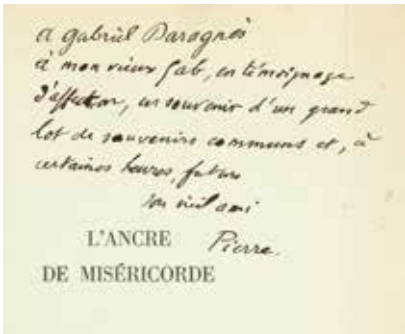 à gabriel Daragnès
à mon vieux Gab, en témoignage
d'affection, en souvenir d'un grand
lot de souvenirs communs et, à
certaines heures, futurs
son vieil ami
Pierre.
L'ANCRE
DE MISÉRICORDE